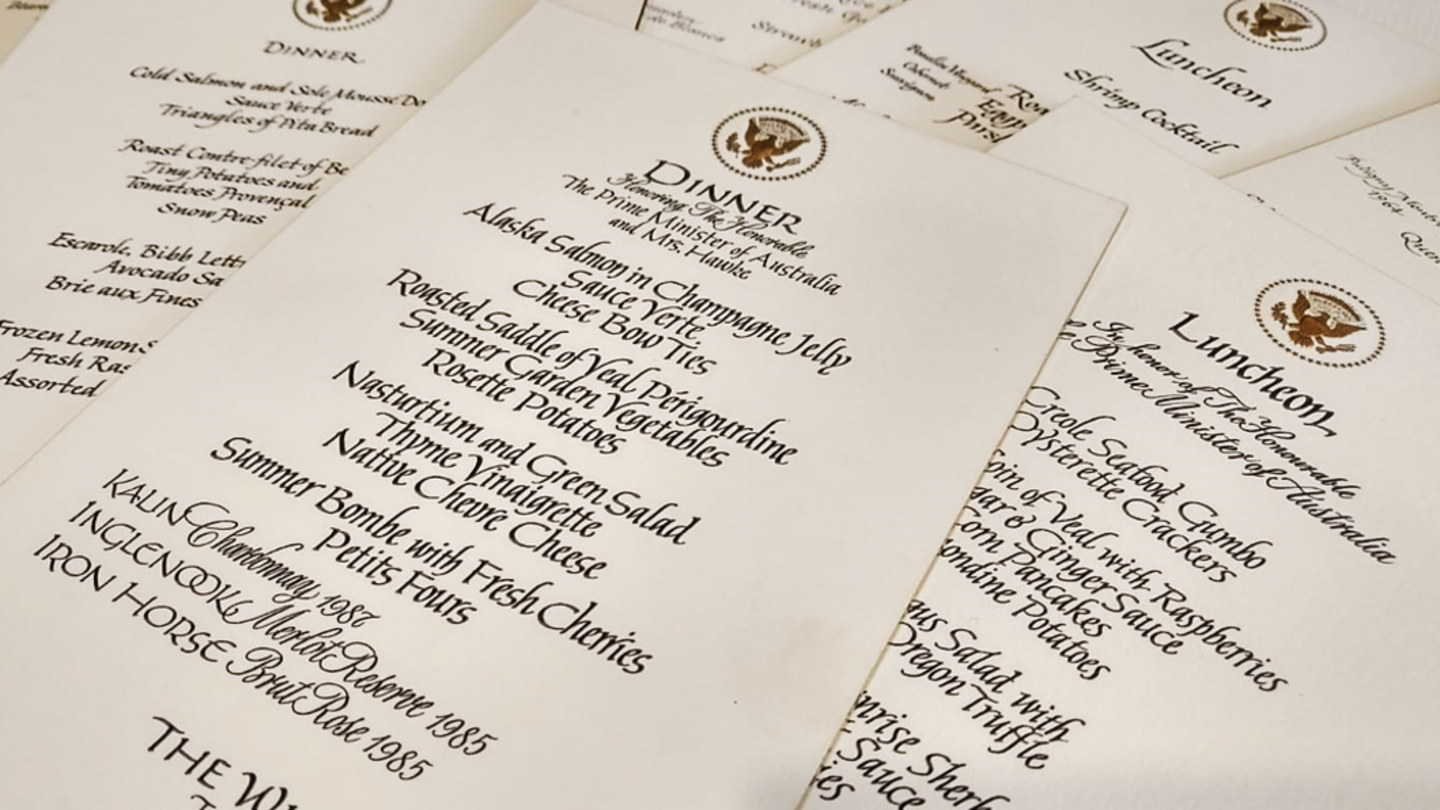 DINNER
Cold Salmon and Sole Mousse Do
Sauce Verte
Triangles of Pita Bread
Roast Contre-filet of Be
Tiny Potatoes and
Tomatoes Provençal
Snow Peas
Escarole, Bibb Lett
Avocado Sa
Brie aux Fines
Frozen Lemon S
Fresh Ras
Assorted
DINNER
Honoring The Honorable
The Prime Minister of Australia
and Mrs. Hawke
Alaska Salmon in Champagne Jelly
Sauce Verte
Cheese Bow Ties
Roasted Saddle of Veal Périgourdine
Summer Garden Vegetables
Rosette Potatoes
Nasturtium and Green Salad
Thyme Vinaigrette
Native Chevre Cheese
Summer Bombe with Fresh Cherries
Petits Fours
KALIN Chardonnay 1987
INGLENOOK Merlot Reserve 1985
IRON HORSE Brut Rose 1985
THE W
Luncheon
Shrimp Cocktail
Cabernet
Sauvignon
Luncheon
In honor of The Honourable
Prime Minister of Australia
Creole Seafood Gumbo
Oysterette Crackers
oin of Veal with Raspberries
gar & Ginger Sauce
Corn Pancakes
ondine Potatoes
gus Salad with
Oregon Truffle
nrise Sherb
Sauce
ies
1964